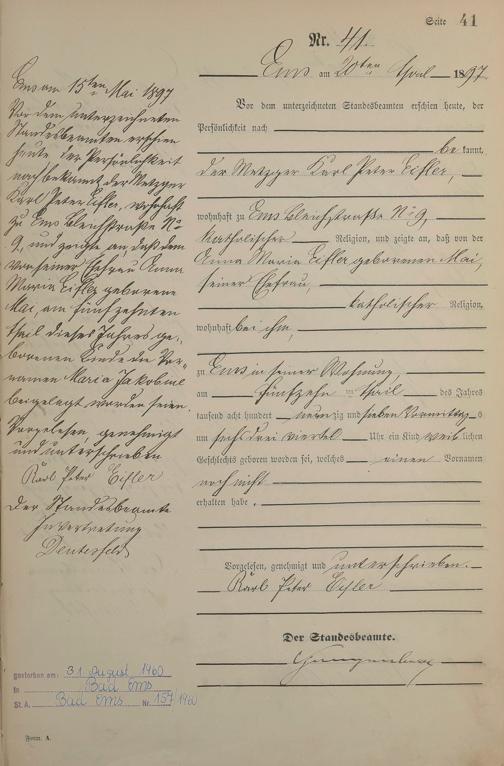 Seite 41
Nr. 41.
Ems am 20ten April 1897
Vor dem unterzeichneten Standesbeamten erschien heute, der
Persönlichkeit nach
bekannt,
der Metzger Karl Peter Eifler,
wohnhaft zu Ems Bleichstraße No 9,
katholischer Religion, und zeigte an, daß von der
Anna Maria Eifler geborenen Mai,
seiner Ehefrau,
katholischer Religion,
wohnhaft bei ihm,
zu Ems in seiner Wohnung,
am fünfzehn ten April des Jahres
tausend acht hundert neunzig und sieben Vormittags
um sechs drei viertel Uhr ein Kind weiblichen
Geschlechts geboren worden sei, welches einen Vornamen
noch nicht
erhalten habe.
Vorgelesen, genehmigt und unterschrieben.
Karl Peter Eifler
Der Standesbeamte.
Ems am 15ten Mai 1897
Vor dem unterzeichneten
Standesbeamten erschien
heute, der Persönlichkeit
nach bekannt, der Metzger
Karl Peter Eifler, wohnhaft
zu Ems Bleichstraße No
9, und zeigte an, daß dem
von seiner Ehefrau Anna
Maria Eifler geborene
Mai, am fünfzehnten
April dieses Jahres ge-
borenen Kinde die Vor-
namen Maria Jakobine
beigelegt worden seien.
Vorgelesen genehmigt
und unterschrieben
Karl Peter Eifler
Der Standesbeamte
In Vertretung
gestorben am: 31. August 1960
in Bad Ems
St. A. Bad Ems Nr. 157/1960
Form. A.